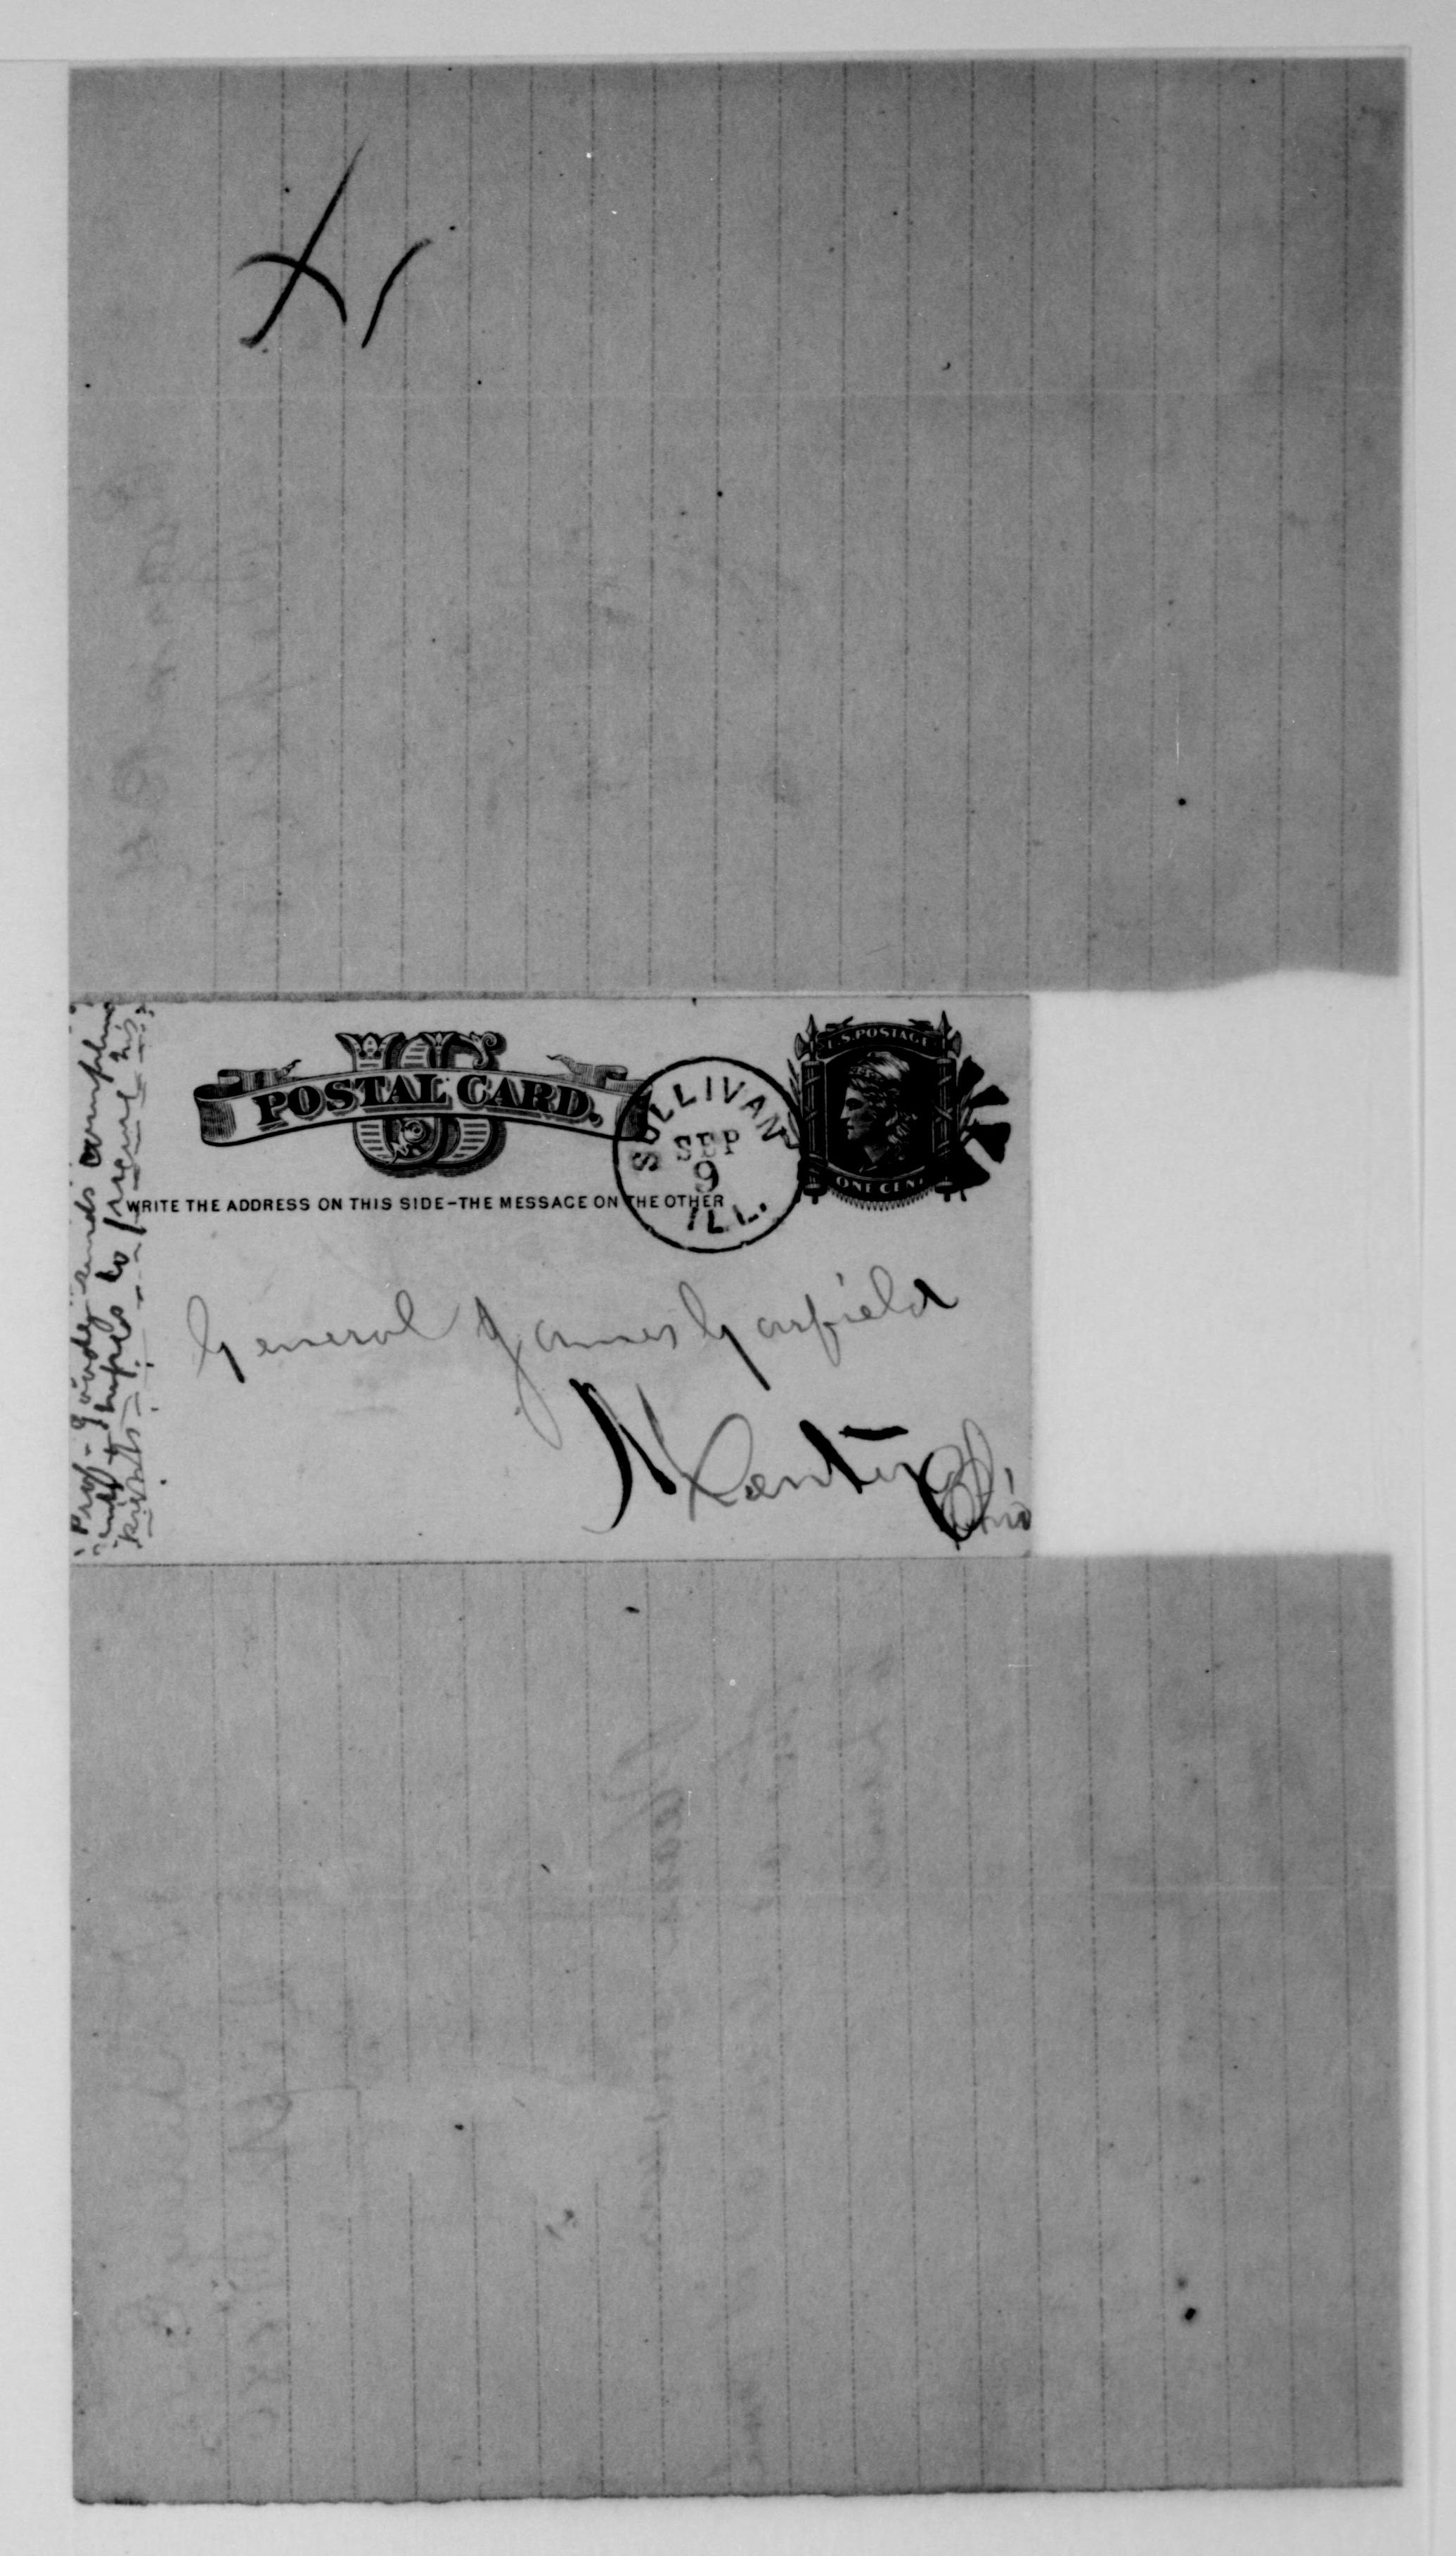 U.S. POSTAGE
US
POSTAL CARD.
SULLIVAN
SEP
9
ILL.
ONE CENT
WRITE THE ADDRESS ON THIS SIDE–THE MESSAGE ON THE OTHER
General James Garfield
Mentor
Ohio
Prof- Goode sends
hopes to his